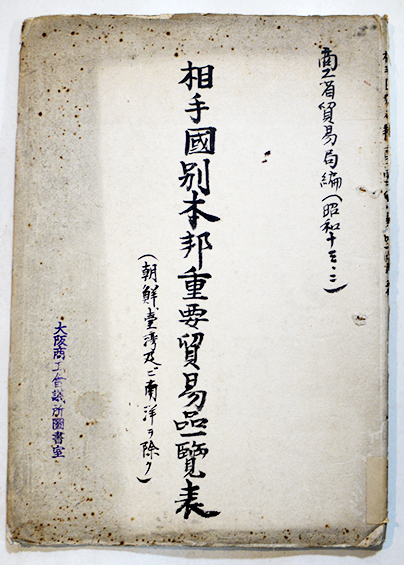 商工省貿易局編(昭和十三・二)
相手國別本邦重要貿易品一覽表
(朝鮮、臺湾及ビ南洋ヲ除ク)
大阪商工會議所圖書室